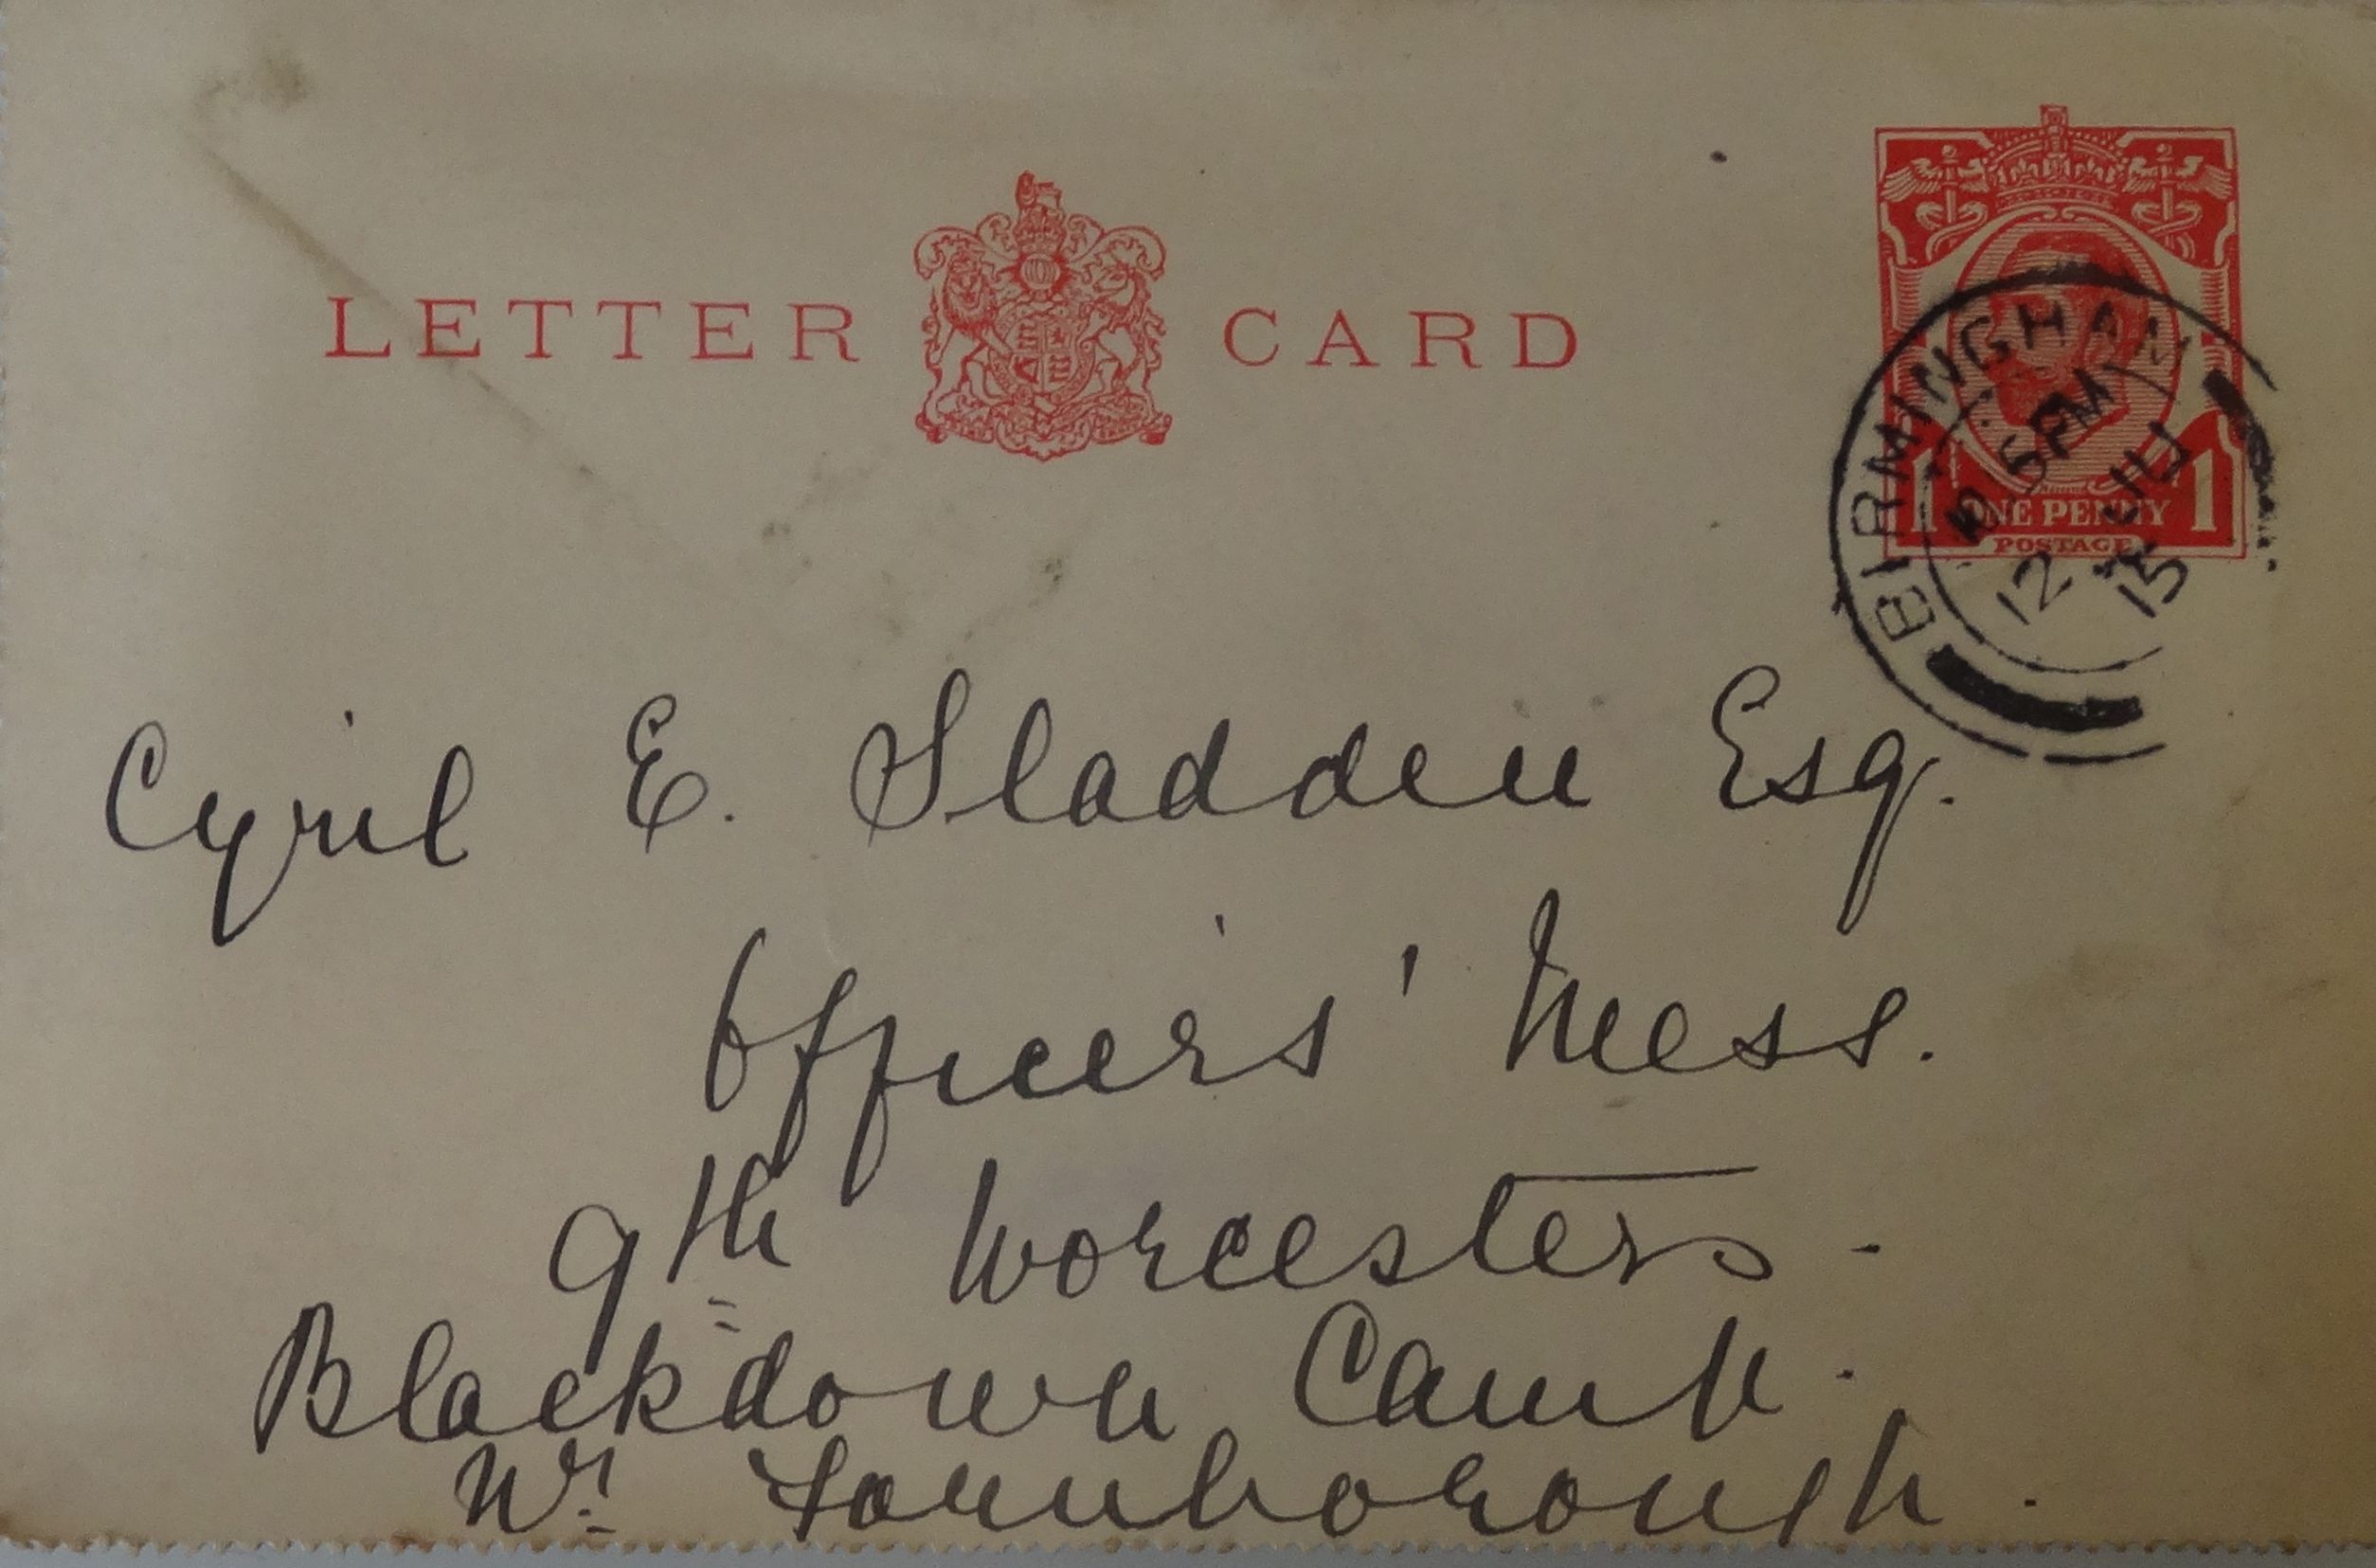 LETTER CARD
BIRMINGHAM
5 PM
12 JU
15
1 ONE PENNY 1
POSTAGE
Cyril E. Sladden Esq.
Officers' Mess.
9th Worcesters -
Blackdown Camp.
Nr. Farnborough.